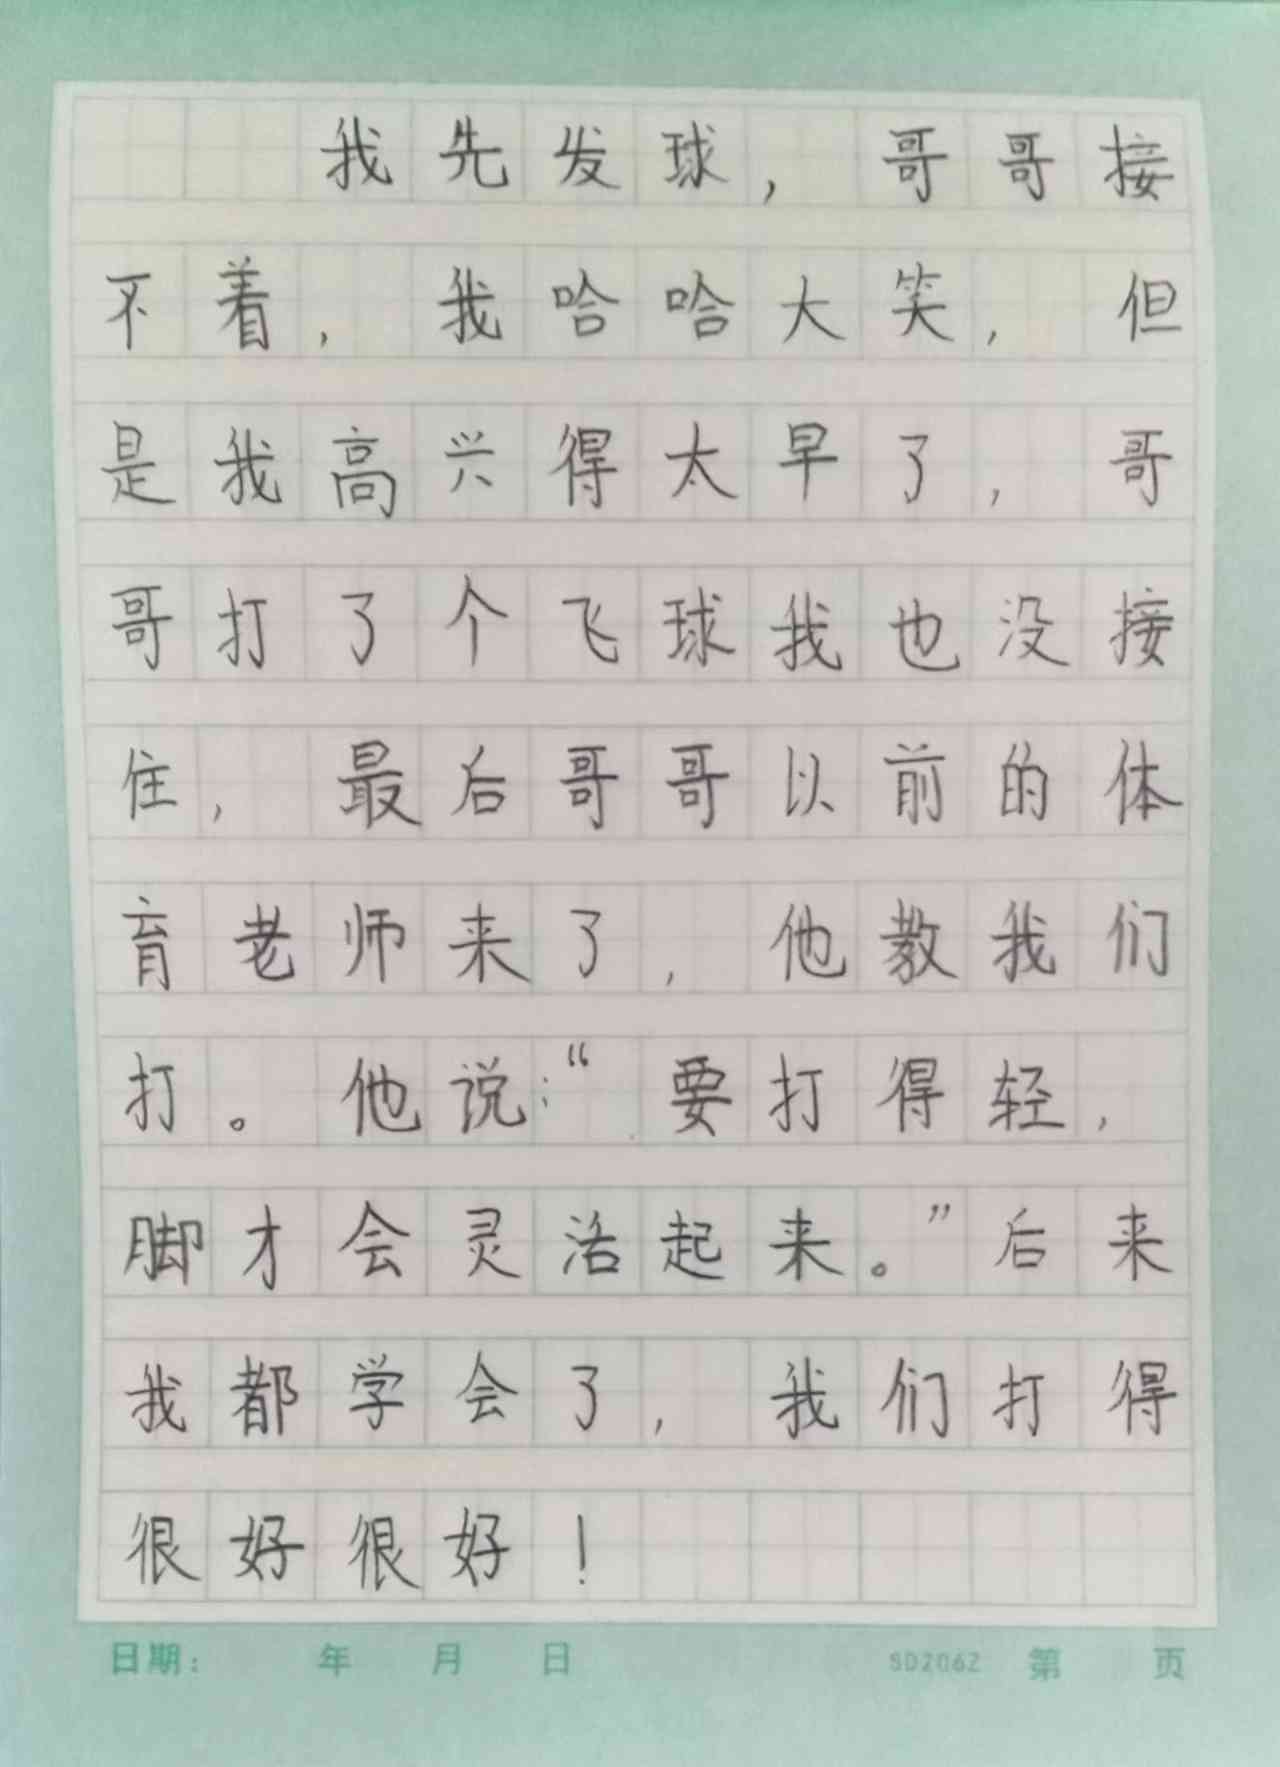 我先发球，哥哥接
不着，我哈哈大笑，但
是我高兴得太早了，哥
哥打了个飞球我也没接
住，最后哥哥以前的体
育老师来了，他教我们
打。他说：“要打得轻，
脚才会灵活起来。”后来
我都学会了，我们打得
很好很好！
日期： 年 月 日 SD2062 第 页